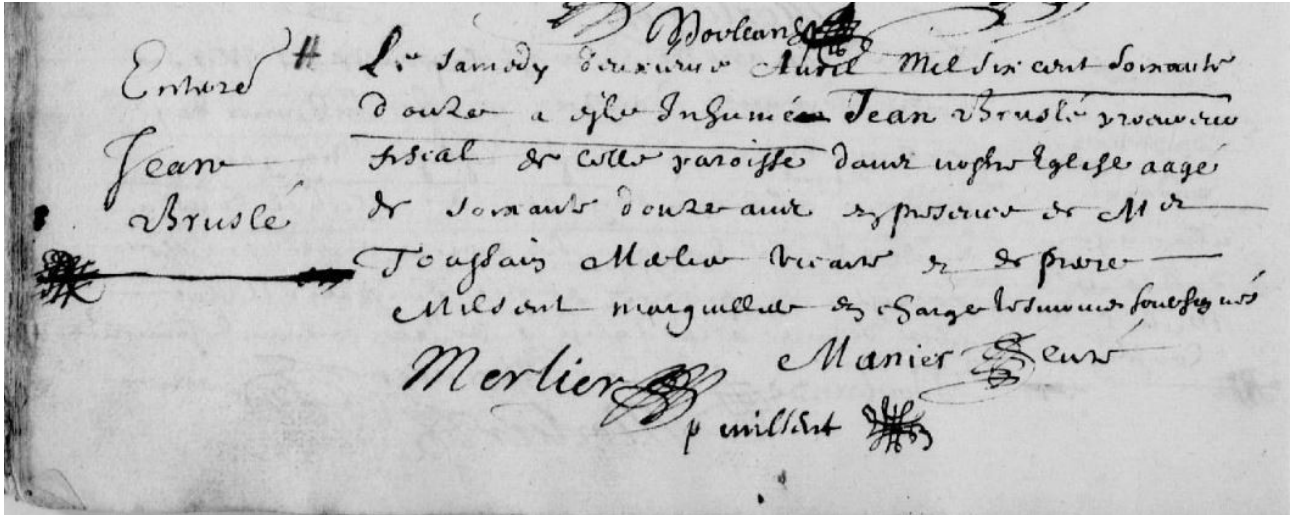 Dorleans
Enterré
Jean
Bruslé
Le Samedy deuxieme Avril Mil six cent soixante
douze a esté Inhumé Jean Bruslé procureur
fiscal de cette paroisse dans nostre Eglise aagé
de soixante douze ans en presence de Me
Toussain Merlier vicaire et de pierre
Milsent marguillier en charge tesmoins soubsignés
Merlier
Manier Curé
p millsent